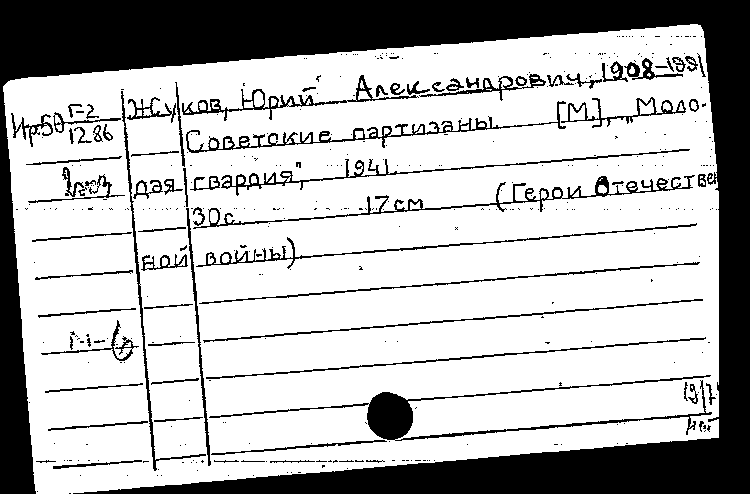 Жуков, Юрий Александрович, 1908-1991
Г-2
1286
Советские партизаны. [М.], „Моло-
дая гвардия", 1941.
30с. 17см (Герои Отечествен
ной войны).
М-6
19/7